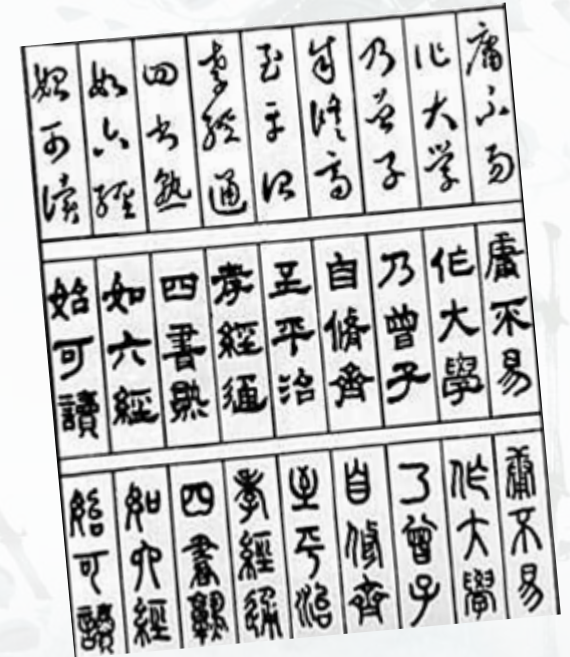 庸不易
作大學
乃曾子
自脩齊
至平治
孝經通
四書熟
如六經
始可讀
庸不易
作大學
乃曾子
自脩齊
至平治
孝經通
四書熟
如六經
始可讀
庸不易
作大學
乃曾子
自脩齊
至平治
孝經通
四書熟
如六經
始可讀